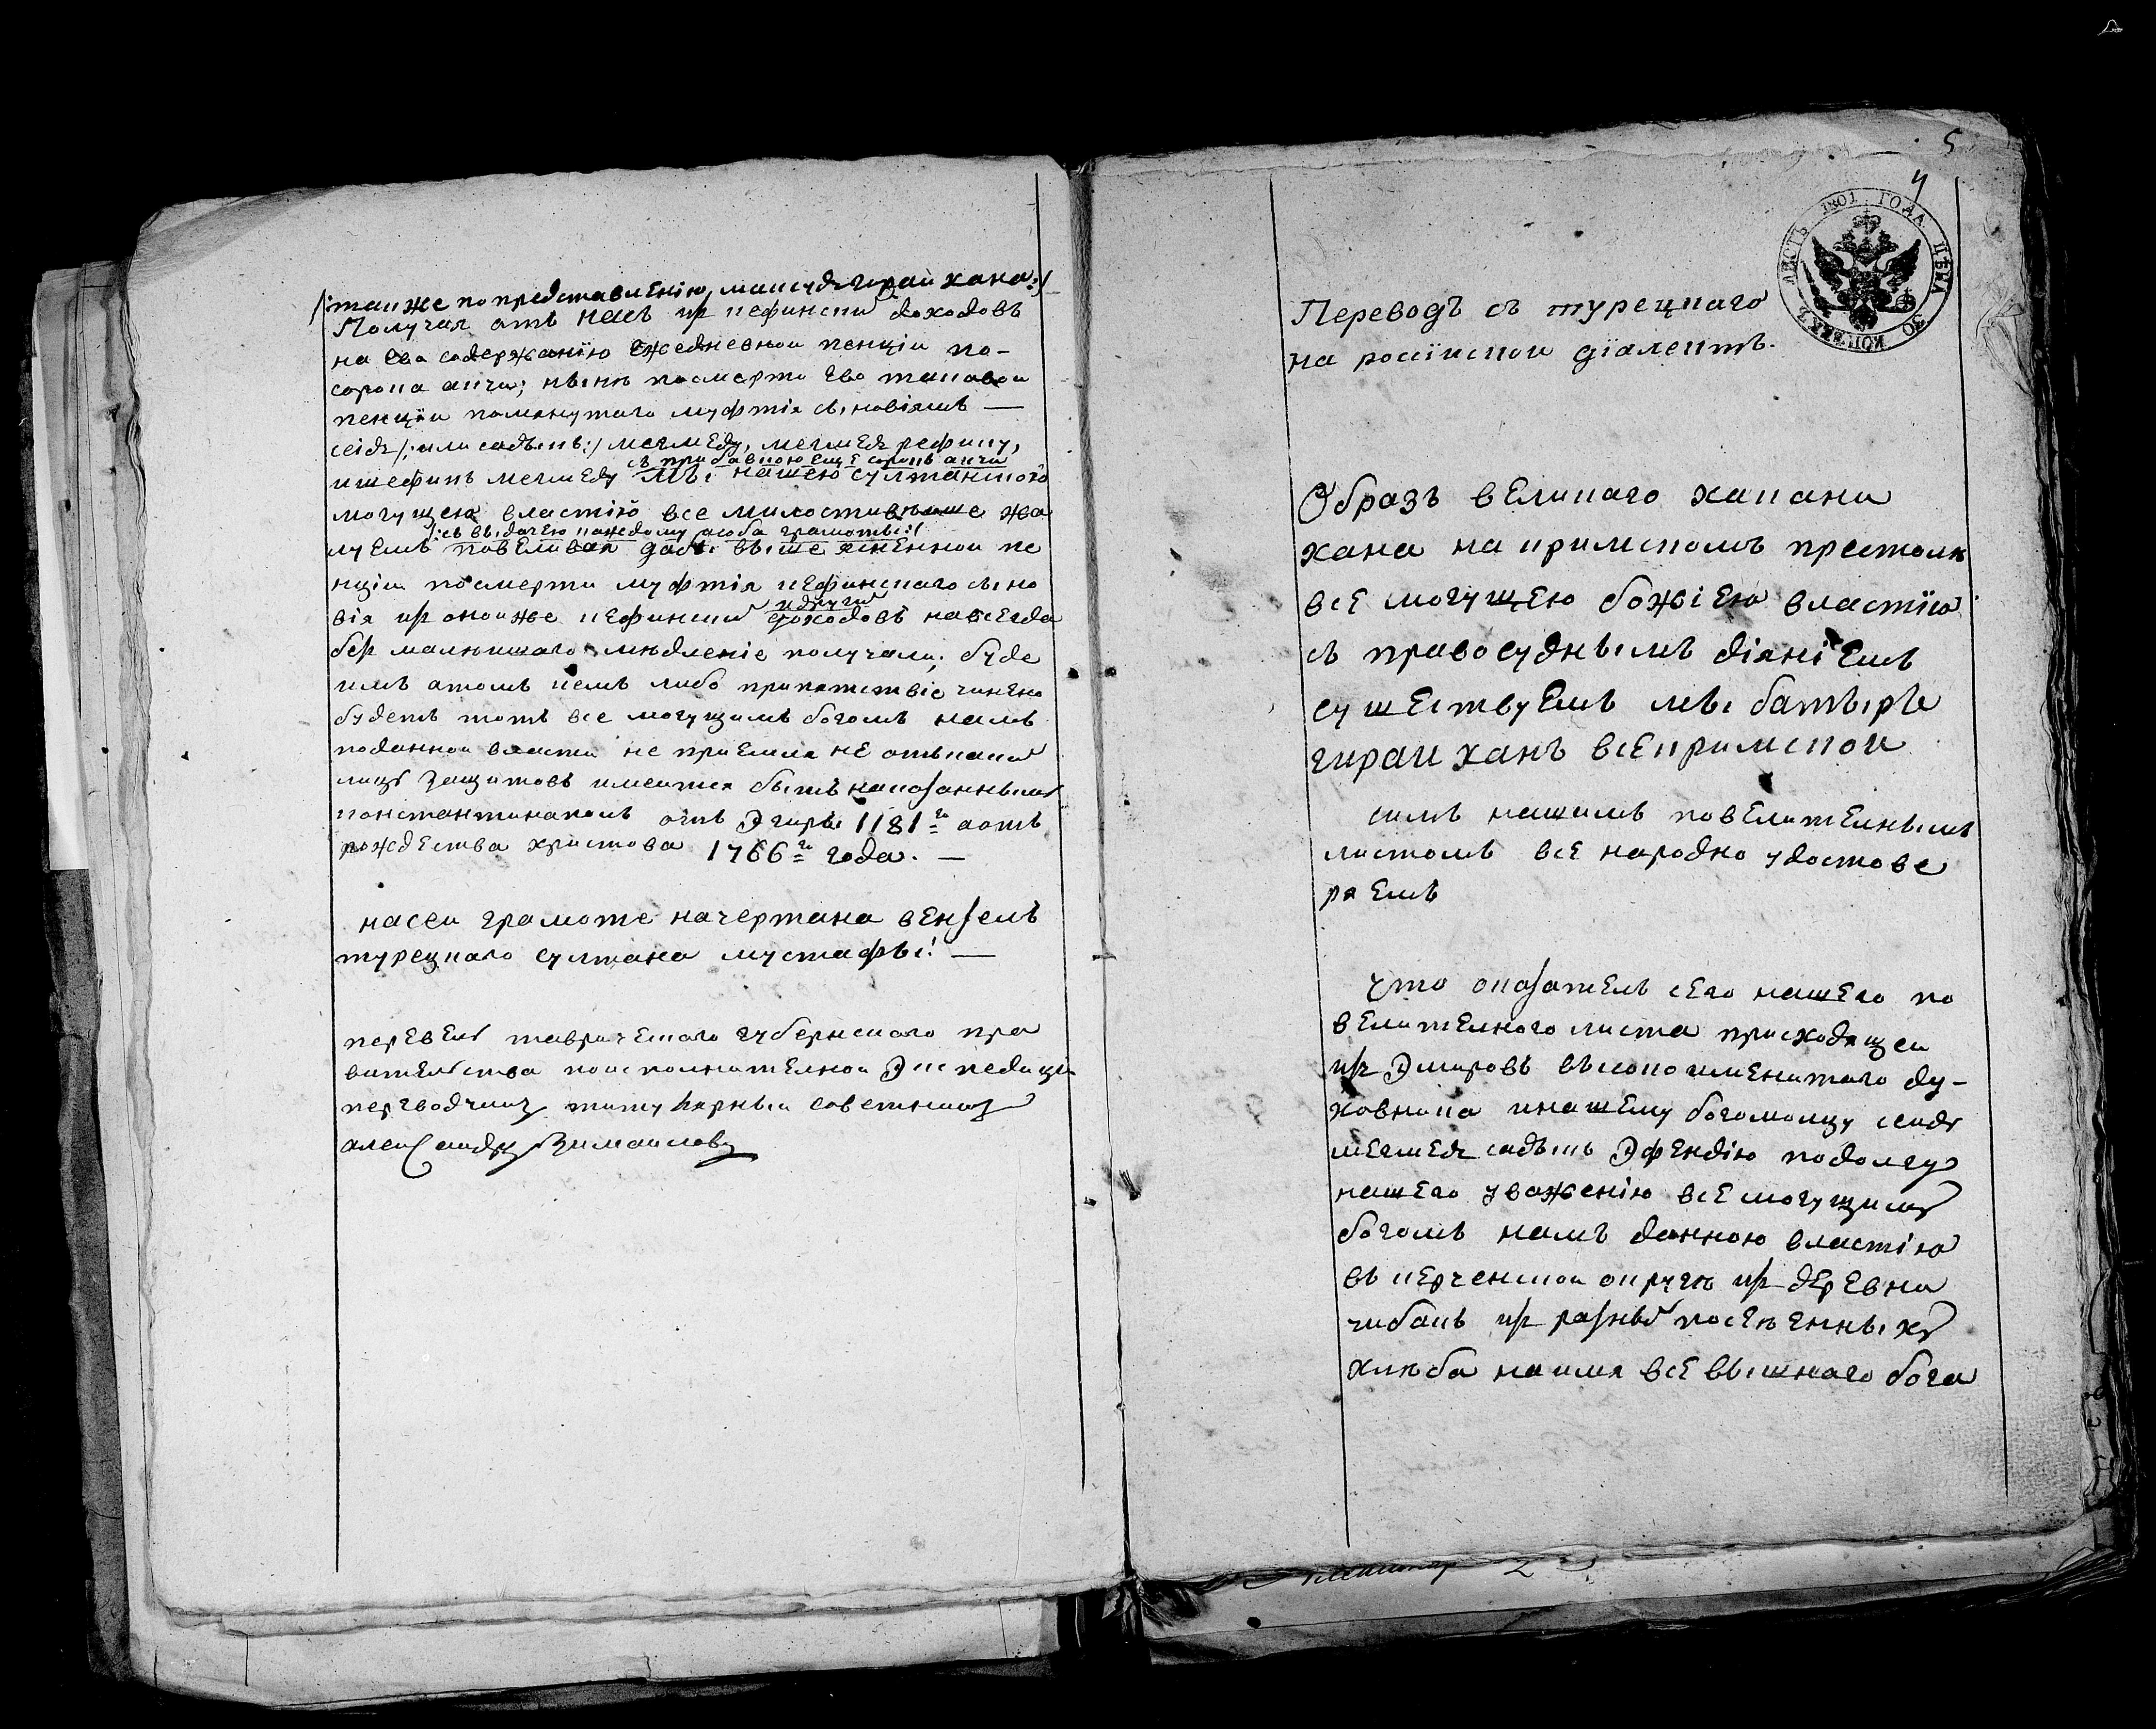 /:также по представлению, максуд гирай хана:/
Получая отъ неiъ изъ кефински доходовъ
на ево содержанïю ежедневнои пенцiи по-
сорока акчи; нынѣ посмерти ево таковои
пенцïи помянутаго муфтïя сыновiямъ —
сеидъ /:или садыкъ:/ мегмеду, мегмедъ рефику,
съ прибавкою еще сорокъ акчи
и шефикъ мегмеду мы нашею султанскою
могущею властiю все милостивѣише жа
/:съ выдачею каждому особа грамоты:/
луемъ повеливая дабы выше ясненнои пе
нцïи посмерти муфтïя кефинскаго сыно
и други
вiя изъ оноиже кефински доходовъ навсегда
без малѣишаго мѣдленiе получали; буде
имъ атомъ кемъ либо припятствiе чинено
будетъ тотъ все могущимъ богомъ намъ
поданнои власти не приемля не отькаки
лицъ защитовъ имеится быть наказаннымъ
константинаполъ отъ Эгиры 1181го аотъ
рождества христова 1766го года. —
насеи грамоте начертана вензель
турецкаго султана мустафы! —
перевелъ таврическаго губернскаго пра
вительства поисполнителнои Экспедицiи
переводчикъ титулярныи советникъ
александръ Измаиловъ
5
4
ЛИСТЪ 1801 ГОДА ЦѢНА 30 КОПѢЕКЪ
Переводъ съ турецкаго
на россïискои дïалектъ.
Образъ великаго хакана
хана на кримскомъ престолѣ
все могущею божiею властïю
съ правосуднымъ дiянiемъ
существуемъ мы батырь
гираи ханъ всекримскои
симъ нашимъ повелителнымъ
листомъ все народно удостове
ряемъ
Что оказатель сего нашего по
велителного листа присходящеи
изъ Эмировъ высокоименитаго ду-
ховника инашему богомолцу сеидъ
мегмедъ садыкъ Эфендiю подолгу
нашего уваженiю всемогущимъ
богомъ намъ данною властiю
въ керченскои округѣ изъ деревни
чибакъ изъ разны посѣенныхъ
хлѣба наимя все вышнаго бога